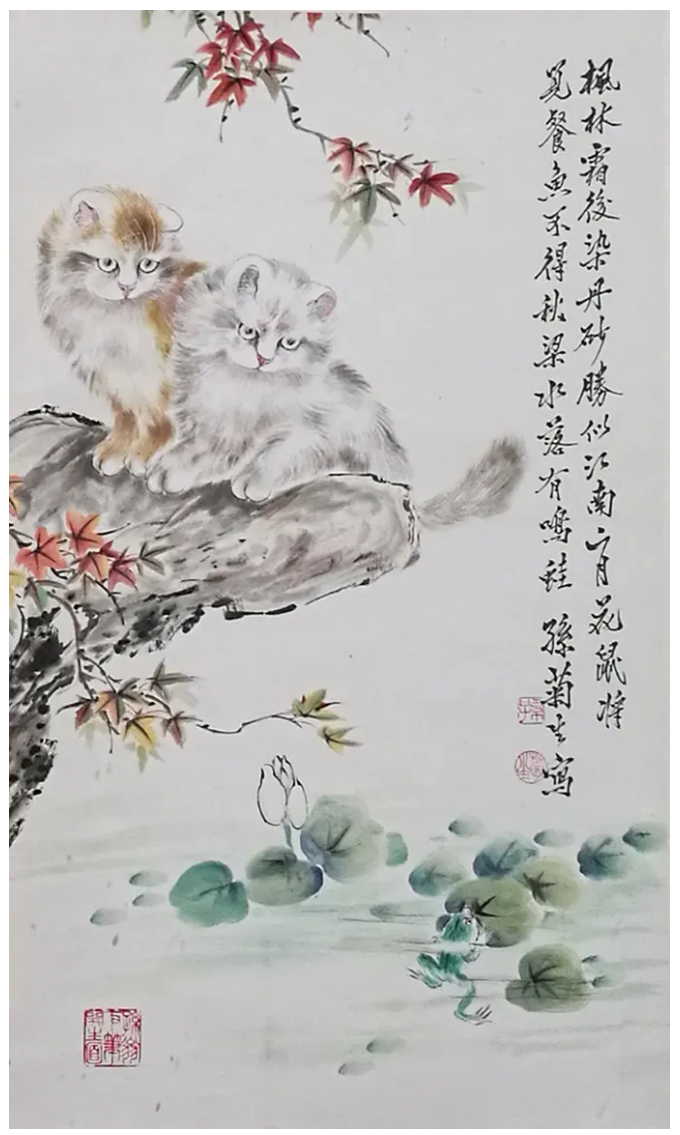 楓林霜後染丹砂勝似江南二月花鼠將
覓餐魚不得秋梁水落有鳴蛙 孫菊生寫